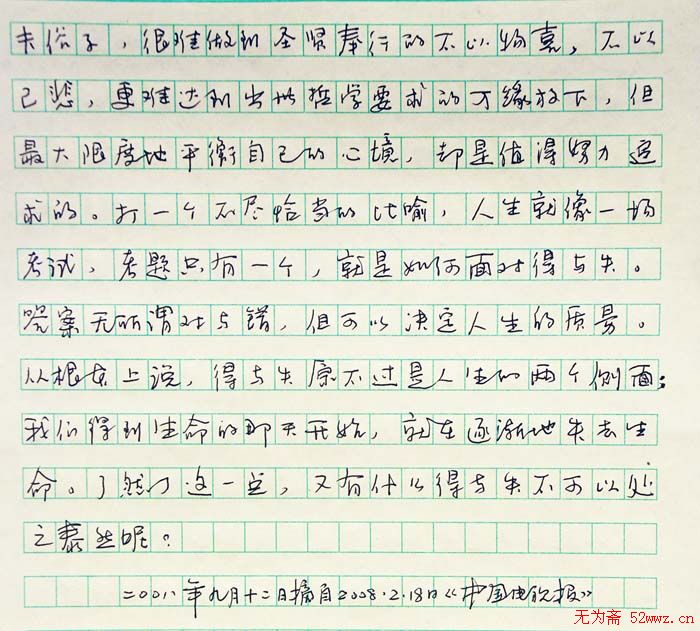 夫俗子，很难做到圣贤奉行的不以物喜，不以
己悲，更难达到出世哲学要求的万缘放下，但
最大限度地平衡自己的心境，却是值得努力追
求的。打一个不尽恰当的比喻，人生就像一场
考试，考题只有一个，就是如何面对得与失。
答案无所谓对与错，但可以决定人生的质量。
从根本上说，得与失原不过是人生的两个侧面；
我们得到生命的那天开始，就在逐渐地失去生
命。了然了这一点，又有什么得与失不可以处
之泰然呢？
二〇〇八年九月十二日摘自2008.2.18日《中国电视报》
无为斋 52wwz.cn